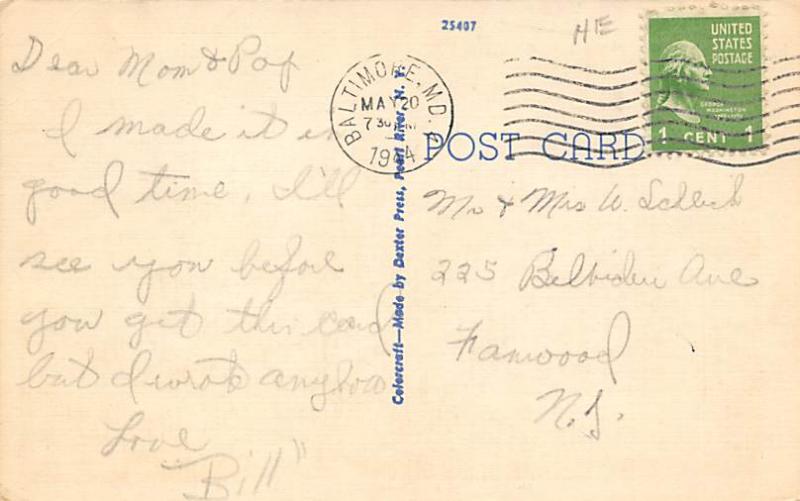 25407
HE
UNITED
STATES
POSTAGE
GEORGE
WASHINGTON
1 CENT 1
BALTIMORE, MD.
MAY 20
7 30 PM
POST CARD
Colorcraft—Made by Dexter Press, Pearl River, N. Y.
Dear Mom & Pop
I made it in
good time, I'll
see you before
you get this card
but I wrote anyhow
Love
"Bill"
Mr & Mrs W. Schleich
225 Belvidere Ave
Fanwood
N.J.